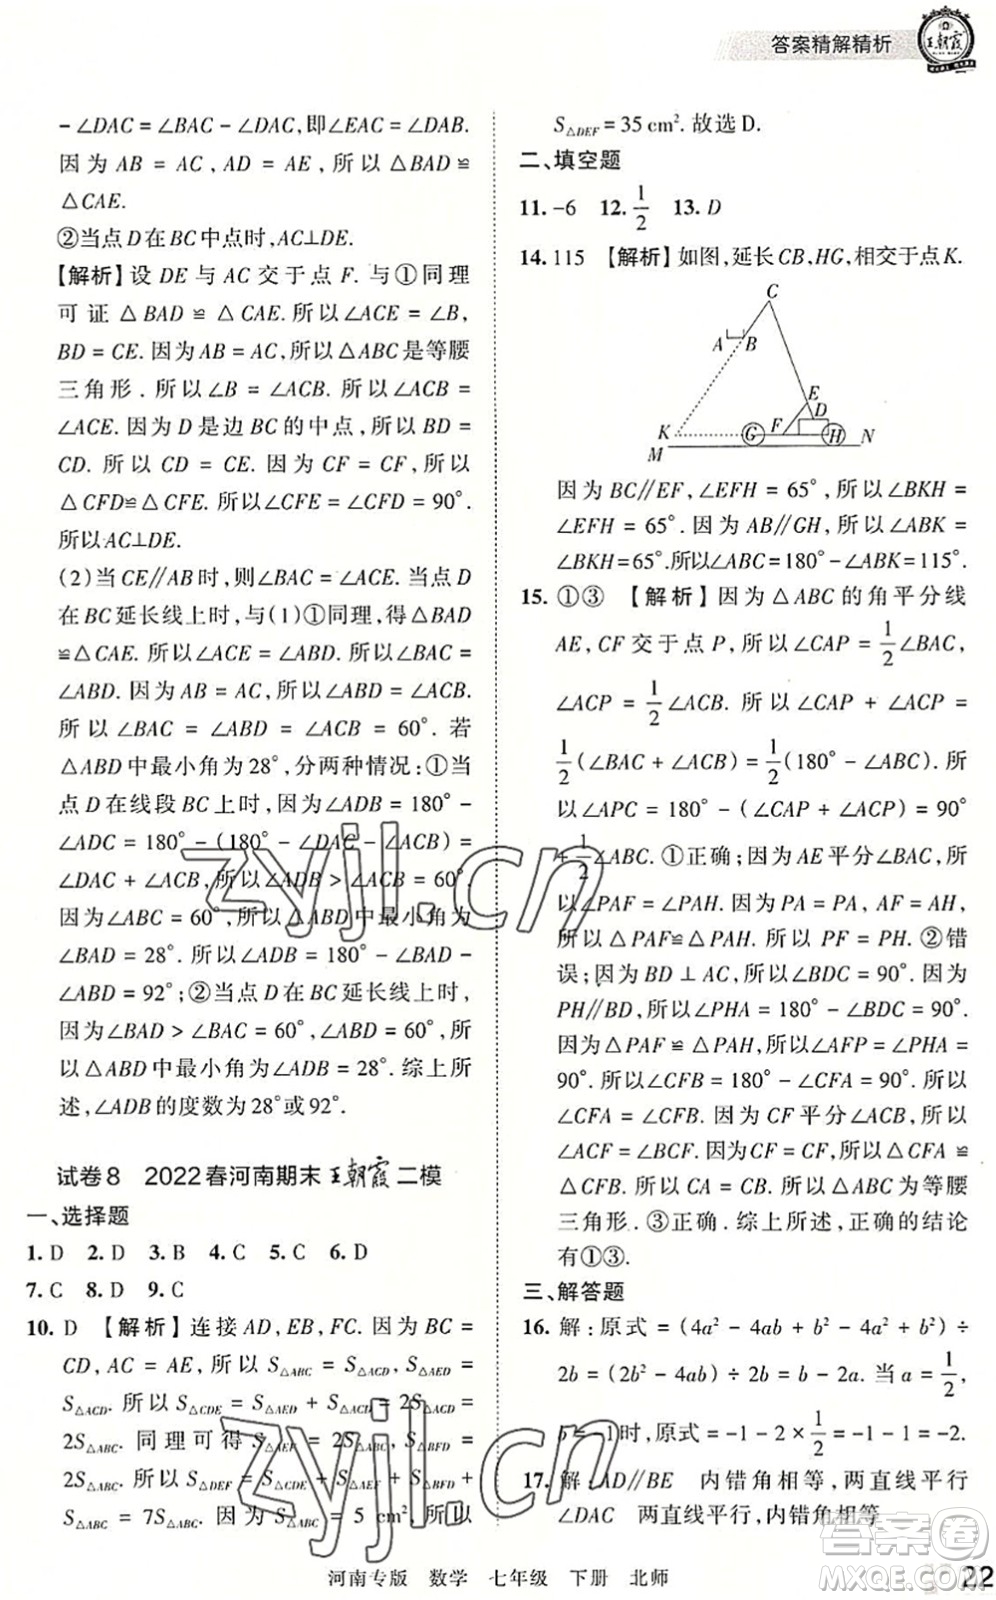 答案精解精析
王朝霞
-∠DAC=∠BAC-∠DAC,即∠EAC=∠DAB.
因为 AB=AC,AD=AE,所以△BAD≌
△CAE.
②当点D在BC中点时,AC⊥DE.
【解析】设DE与AC交于点F.与①同理
可证△BAD≌△CAE.所以∠ACE=∠B,
BD=CE.因为AB=AC,所以△ABC是等腰
三角形.所以∠B=∠ACB.所以∠ACB=
∠ACE.因为D是边BC的中点,所以BD=
CD.所以CD=CE.因为CF=CF,所以
△CFD≌△CFE.所以∠CFE=∠CFD=90°.
所以AC⊥DE.
(2)当CE∥AB时,则∠BAC=∠ACE.当点D
在BC延长线上时,与(1)①同理,得△BAD
≌△CAE.所以∠ACE=∠ABD.所以∠BAC=
∠ABD.因为AB=AC,所以∠ABD=∠ACB.
所以∠BAC=∠ABD=∠ACB=60°.若
△ABD中最小角为28°,分两种情况:①当
点D在线段BC上时,因为∠ADB=180°-
∠ADC=180°-(180°-∠DAC-∠ACB)=
∠DAC+∠ACB,所以∠ADB>∠ACB=60°.
因为∠ABC=60°,所以△ABD中最小角为
∠BAD=28°.所以∠ADB=180°-∠BAD-
∠ABD=92°;②当点D在BC延长线上时,
因为∠BAD>∠BAC=60°,∠ABD=60°,所
以△ABD中最小角为∠ADB=28°.综上所
述,∠ADB的度数为28°或92°.
试卷8 2022春河南期末王朝霞二模
一、选择题
1. D 2. D 3. B 4. C 5. C 6. D
7. C 8. D 9. C
10. D 【解析】连接AD,EB,FC.因为BC=
CD,AC=AE,所以S△ABC=S△ACD,S△AED=
S△ACD.所以S△CDE=S△AED+S△ACD=2S△ACD=
2S△ABC.同理可得S△AEF=2S△ABC,S△BFD=
2S△ABC.所以S△DEF=S△CDE+S△AEF+S△BFD+
S△ABC=7S△ABC.因为S△ABC=5 cm².所以
S△DEF=35 cm².故选D.
二、填空题
11. -6 12. 1/2 13. D
14. 115 【解析】如图,延长CB,HG,相交于点K.
C
A B
E
D
K G F H
M N
因为BC∥EF,∠EFH=65°,所以∠BKH=
∠EFH=65°.因为AB∥GH,所以∠ABK=
∠BKH=65°.所以∠ABC=180°-∠ABK=115°.
15. ①③ 【解析】因为△ABC的角平分线
AE,CF交于点P,所以∠CAP=1/2∠BAC,
∠ACP=1/2∠ACB.所以∠CAP+∠ACP=
1/2(∠BAC+∠ACB)=1/2(180°-∠ABC).所
以∠APC=180°-(∠CAP+∠ACP)=90°
+1/2∠ABC.①正确;因为AE平分∠BAC,所
以∠PAF=∠PAH.因为PA=PA,AF=AH,
所以△PAF≌△PAH.所以PF=PH.②错
误;因为BD⊥AC,所以∠BDC=90°.因为
PH∥BD,所以∠PHA=180°-∠BDC=90°.
因为△PAF≌△PAH,所以∠AFP=∠PHA=
90°.所以∠CFB=180°-∠CFA=90°.所以
∠CFA=∠CFB.因为CF平分∠ACB,所以
∠ACF=∠BCF.因为CF=CF,所以△ACF≌
△BCF.所以CA=CB.所以△ABC为等腰
三角形.③正确.综上所述,正确的结论
有①③.
三、解答题
16. 解:原式=(4a²-4ab+b²-4a²+b²)÷
2b=(2b²-4ab)÷2b=b-2a.当a=1/2,
b=-1时,原式=-1-2×1/2=-1-1=-2.
17. 解:AD∥BE 内错角相等,两直线平行
∠DAC 两直线平行,内错角相等
zyjl.cn
zyjl.cn
答案圈
河南专版 数学 七年级 下册 北师
22